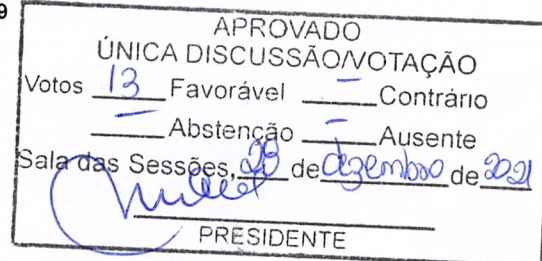 9
APROVADO
ÚNICA DISCUSSÃO/VOTAÇÃO
Votos 13 Favorável – Contrário
– Abstenção – Ausente
Sala das Sessões, 29 de dezembro de 2021
PRESIDENTE